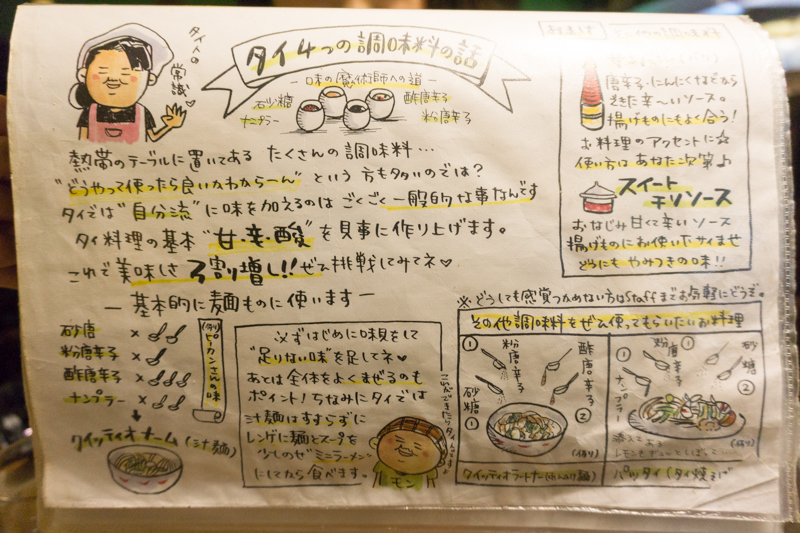 タイ人の
常識
タイ4つの調味料の話
－味の魔術師への道－
砂糖
酢唐辛子
ナンプラー
粉唐辛子
熱帯のテーブルに置いてある たくさんの調味料…
"どうやって使ったら良いかわからーん" という 方も多いのでは？
タイでは"自分流"に味を加えるのは ごくごく一般的な事なんです
タイ料理の基本 "甘・辛・酸" を見事に作り上げます。
これで美味しさ 3割増し!! ぜひ挑戦してみてネ♡
－基本的に麺ものに使います－
砂唐 ×
粉唐辛子 ×
酢唐辛子 ×
ナンプラー ×
(例)
ピーカンさんの味
クイッティオナーム(汁麺)
必ずはじめに味見をして
"足りない味"を足してネ♡
あとは全体をよくまぜるのも
ポイント！ちなみにタイでは
汁麺はすすらずに
レンゲに麺とスープを
少しのせ"ミニラーメン"
にしてから食べます。
モン
おまけ
唐辛子・にんにくなどから
できた辛～いソース。
揚げものにもよく合う！
お料理のアクセントに☆
使い方は あなた次第♪
スイート
チリソース
おなじみ甘くて辛いソース
揚げものにお使い下サイませ
どうにも やみつきの味!!
※どうしても感覚つかめない方はStaffまでお気軽にどうぞ。
その他調味料をぜひ使ってもらいたいお料理
①
粉唐辛子
酢唐辛子
砂糖
①
②
(作り)
クイッティオラートナー(あんかけ麺)
①
粉唐辛子
①
砂糖
②
ナンプラー
添えてある
(作り)
パッタイ(タイ焼そば